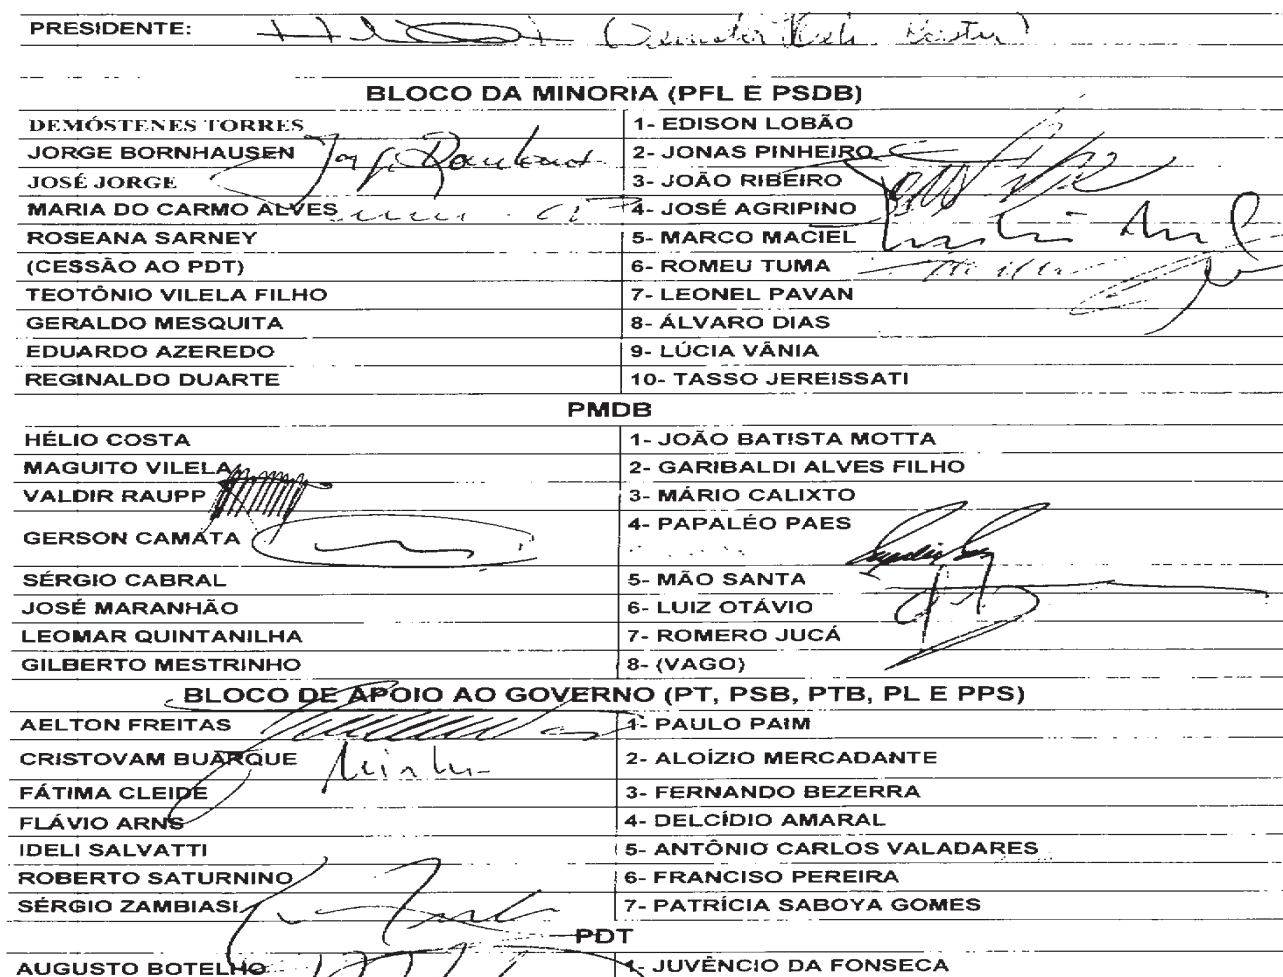 PRESIDENTE: (Senador Hélio Costa)
BLOCO DA MINORIA (PFL E PSDB)
DEMÓSTENES TORRES 1- EDISON LOBÃO
JORGE BORNHAUSEN 2- JONAS PINHEIRO
JOSÉ JORGE 3- JOÃO RIBEIRO
MARIA DO CARMO ALVES 4- JOSÉ AGRIPINO
ROSEANA SARNEY 5- MARCO MACIEL
(CESSÃO AO PDT) 6- ROMEU TUMA
TEOTÔNIO VILELA FILHO 7- LEONEL PAVAN
GERALDO MESQUITA 8- ÁLVARO DIAS
EDUARDO AZEREDO 9- LÚCIA VÂNIA
REGINALDO DUARTE 10- TASSO JEREISSATI
PMDB
HÉLIO COSTA 1- JOÃO BATISTA MOTTA
MAGUITO VILELA 2- GARIBALDI ALVES FILHO
VALDIR RAUPP 3- MÁRIO CALIXTO
GERSON CAMATA 4- PAPALÉO PAES
SÉRGIO CABRAL 5- MÃO SANTA
JOSÉ MARANHÃO 6- LUIZ OTÁVIO
LEOMAR QUINTANILHA 7- ROMERO JUCÁ
GILBERTO MESTRINHO 8- (VAGO)
BLOCO DE APOIO AO GOVERNO (PT, PSB, PTB, PL E PPS)
AELTON FREITAS 1- PAULO PAIM
CRISTOVAM BUARQUE 2- ALOÍZIO MERCADANTE
FÁTIMA CLEIDE 3- FERNANDO BEZERRA
FLÁVIO ARNS 4- DELCÍDIO AMARAL
IDELI SALVATTI 5- ANTÔNIO CARLOS VALADARES
ROBERTO SATURNINO 6- FRANCISO PEREIRA
SÉRGIO ZAMBIASI 7- PATRÍCIA SABOYA GOMES
PDT
AUGUSTO BOTELHO 1- JUVÊNCIO DA FONSECA